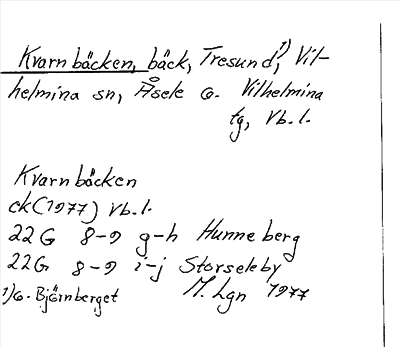 Kvarnbäcken, bäck, Tresund,¹) Vil-
helmina sn, Åsele o. Vilhelmina
tg, Vb. l.
Kvarnbäcken
ck (1977) Vb. l.
22G 8-9 g-h Hunneberg
22G 8-9 i-j Storseleby
1) o. Björnberget M. Lgn 1977